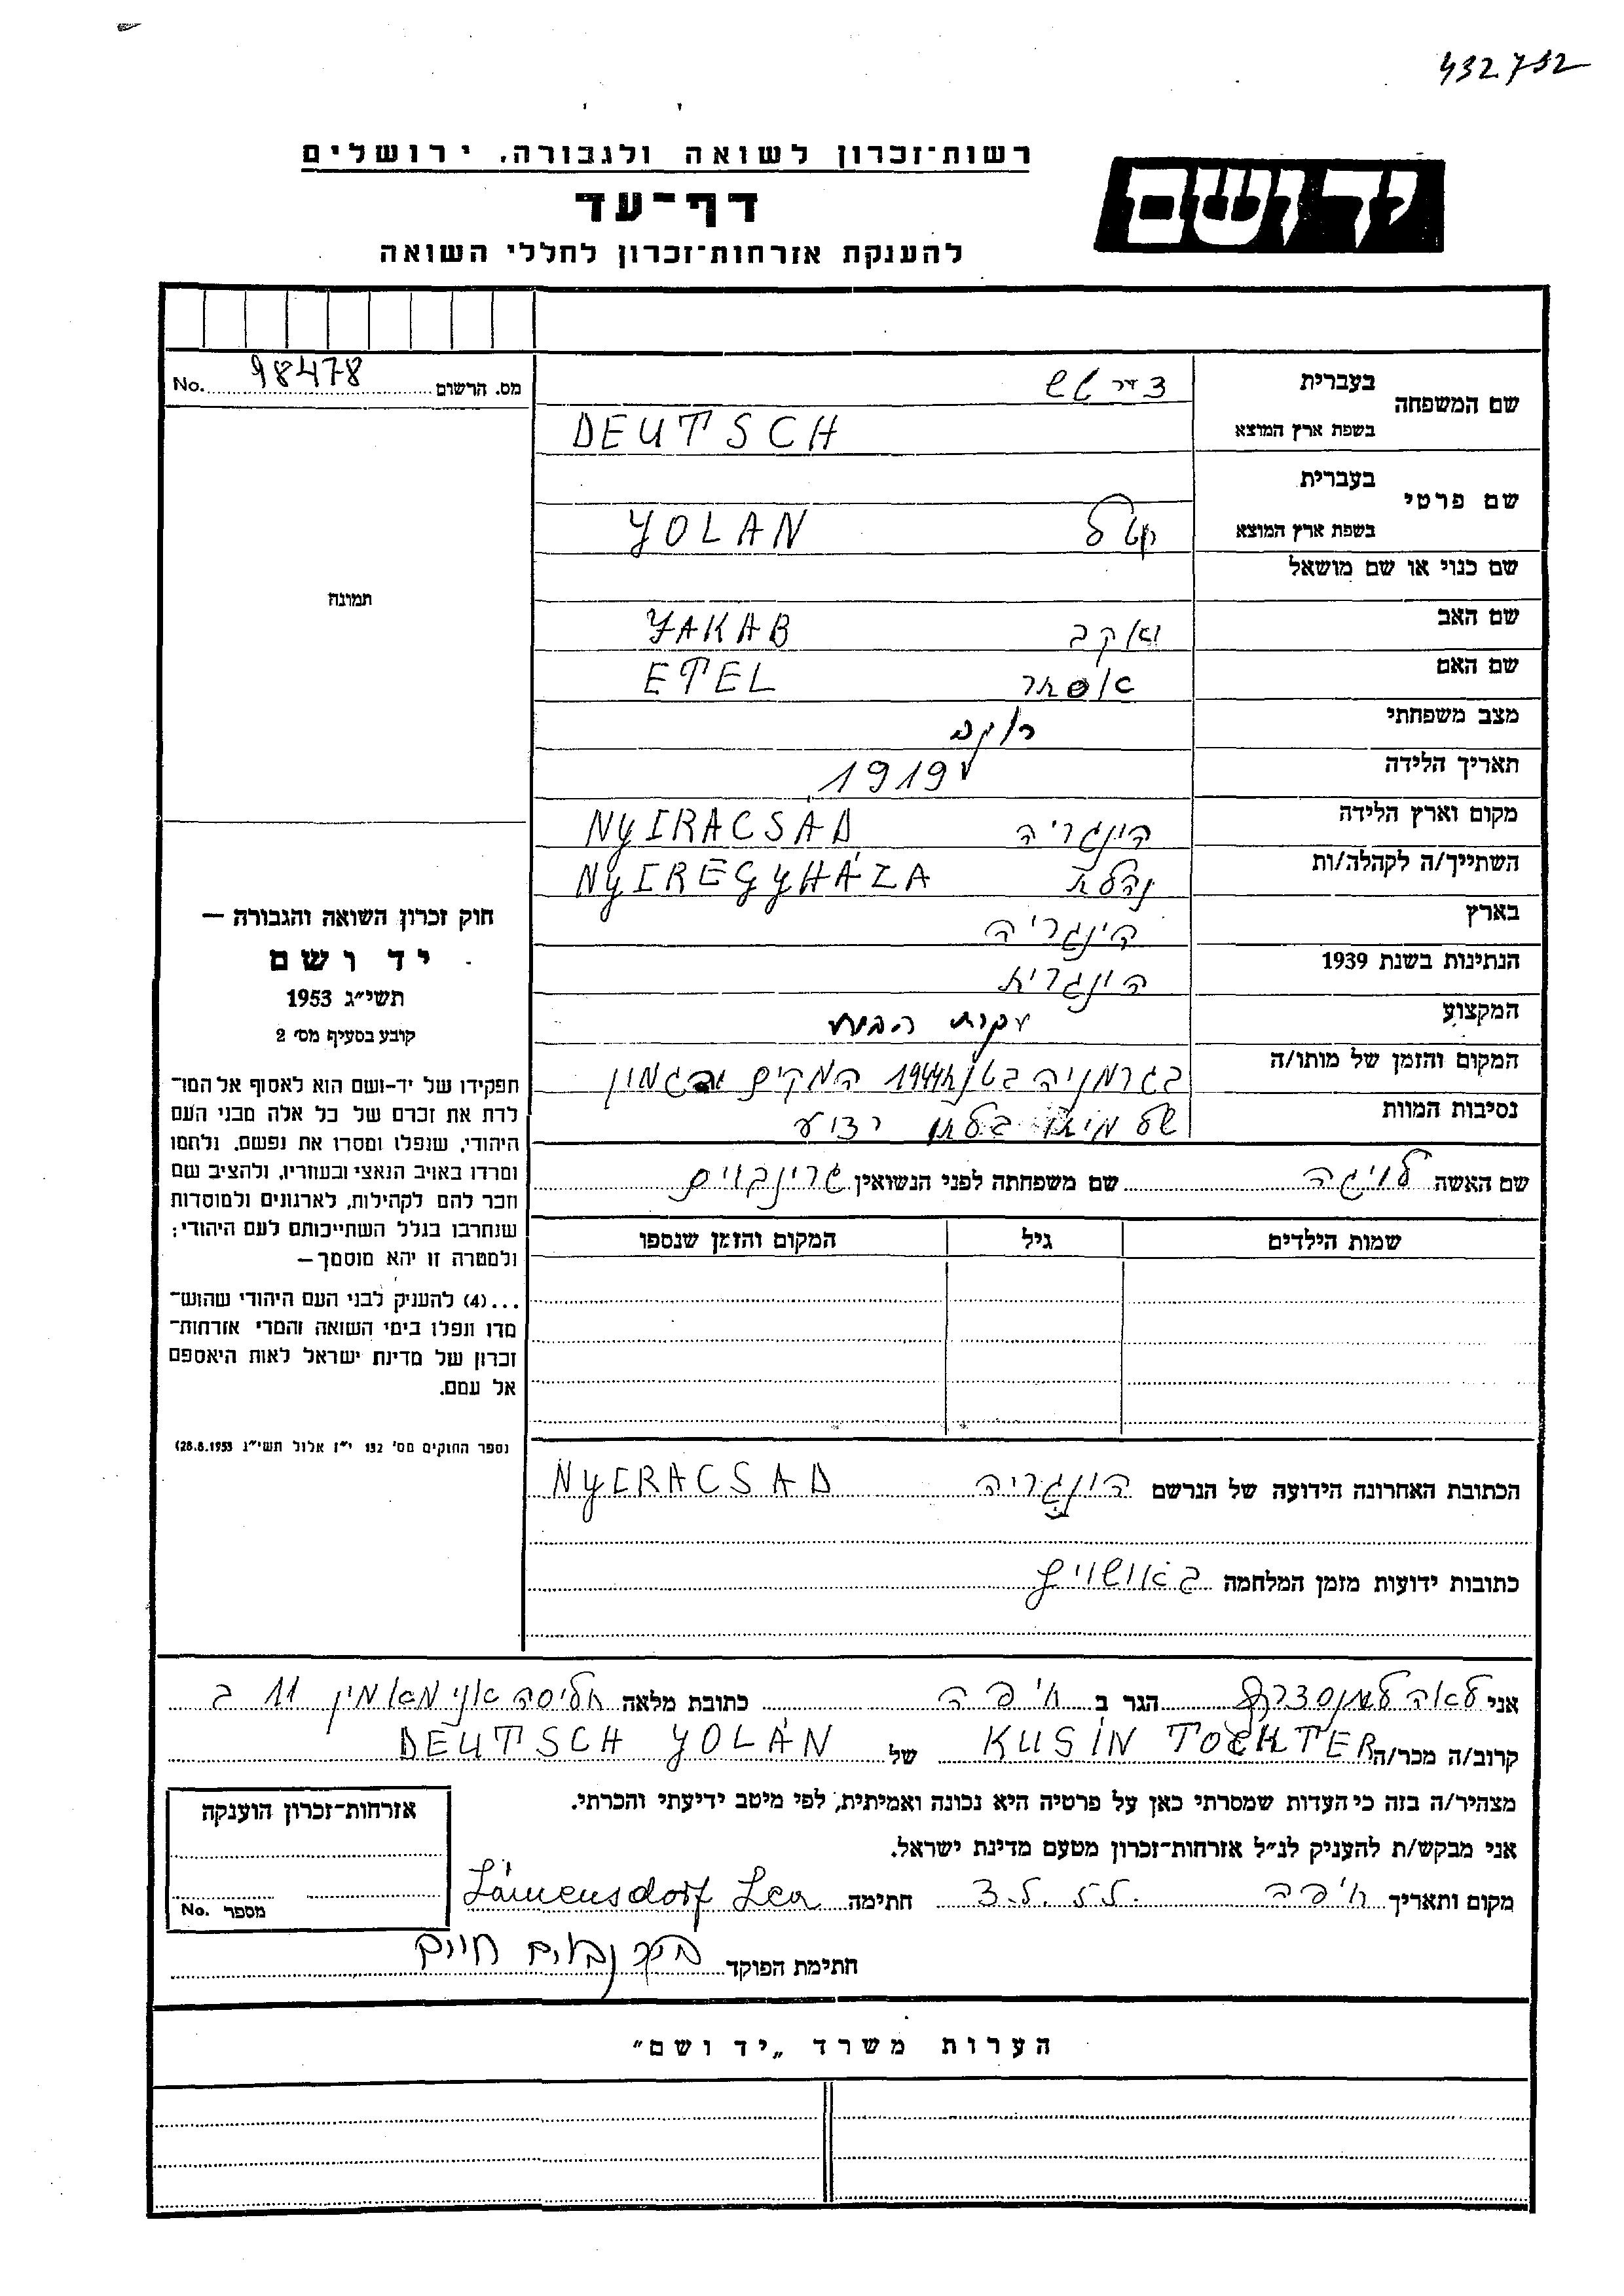 432752
יד ושם
רשות־זכרון לשואה ולגבורה, ירושלים
דף־עד
להענקת אזרחות־זכרון לחללי השואה
מס. הרשום 98478 No.
שם המשפחה
בעברית
בשפת ארץ המוצא DEUTSCH
שם פרטי
בעברית
בשפת ארץ המוצא YOLAN
שם כנוי או שם מושאל
שם האב YAKAB
שם האם אסתר ETEL
מצב משפחתי
תאריך הלידה 1919
מקום וארץ הלידה הונגריה NYIRACSÁD
השתייך/ה לקהלה/ות NYIREGYHÁZA
בארץ הינגריה
הנתינות בשנת 1939 הונגרית
המקצוע עקרת הבית
המקום והזמן של מותו/ה בגרמניה 1944 המקום
נסיבות המוות של ידוע
שם האשה שם משפחתה לפני הנשואין גרינבוים
שמות הילדים גיל המקום והזמן שנספו
הכתובת האחרונה הידועה של הנרשם הונגריה NYIRACSAD
כתובות ידועות מזמן המלחמה באושויץ
תמונה
חוק זכרון השואה והגבורה —
יד ושם
תשי״ג 1953
קובע בסעיף מס׳ 2
תפקידו של יד-ושם הוא לאסוף אל המו־
לדת את זכרם של כל אלה מבני העם
היהודי, שנפלו ומסרו את נפשם, נלחמו
ומרדו באויב הנאצי ובעוזריו, ולהציב שם
וזכר להם לקהילות, לארגונים ולמוסדות
שנחרבו בגלל השתייכותם לעם היהודי;
ולמטרה זו יהא מוסמך —
...(4) להעניק לבני העם היהודי שהוש־
מדו ונפלו בימי השואה והמרי אזרחות־
זכרון של מדינת ישראל לאות היאספם
אל עמם.
(ספר החוקים מס׳ 132 י״ז אלול תשי״ג 28.8.1953)
אני לאה למנסדרף הגר ב חיפה כתובת מלאה חליסה אני מאמין 11 ב
קרוב/ה מכר/ה KUSIN TOCHTER של DEUTSCH YOLÁN
מצהיר/ה בזה כי העדות שמסרתי כאן על פרטיה היא נכונה ואמיתית, לפי מיטב ידיעתי והכרתי.
אני מבקש/ת להעניק לנ״ל אזרחות־זכרון מטעם מדינת ישראל.
מקום ותאריך חיפה חתימה Lámensdorf Lea
חתימת הפוקד חיים
אזרחות־זכרון הוענקה
מספר No.
הערות משרד „יד ושם״